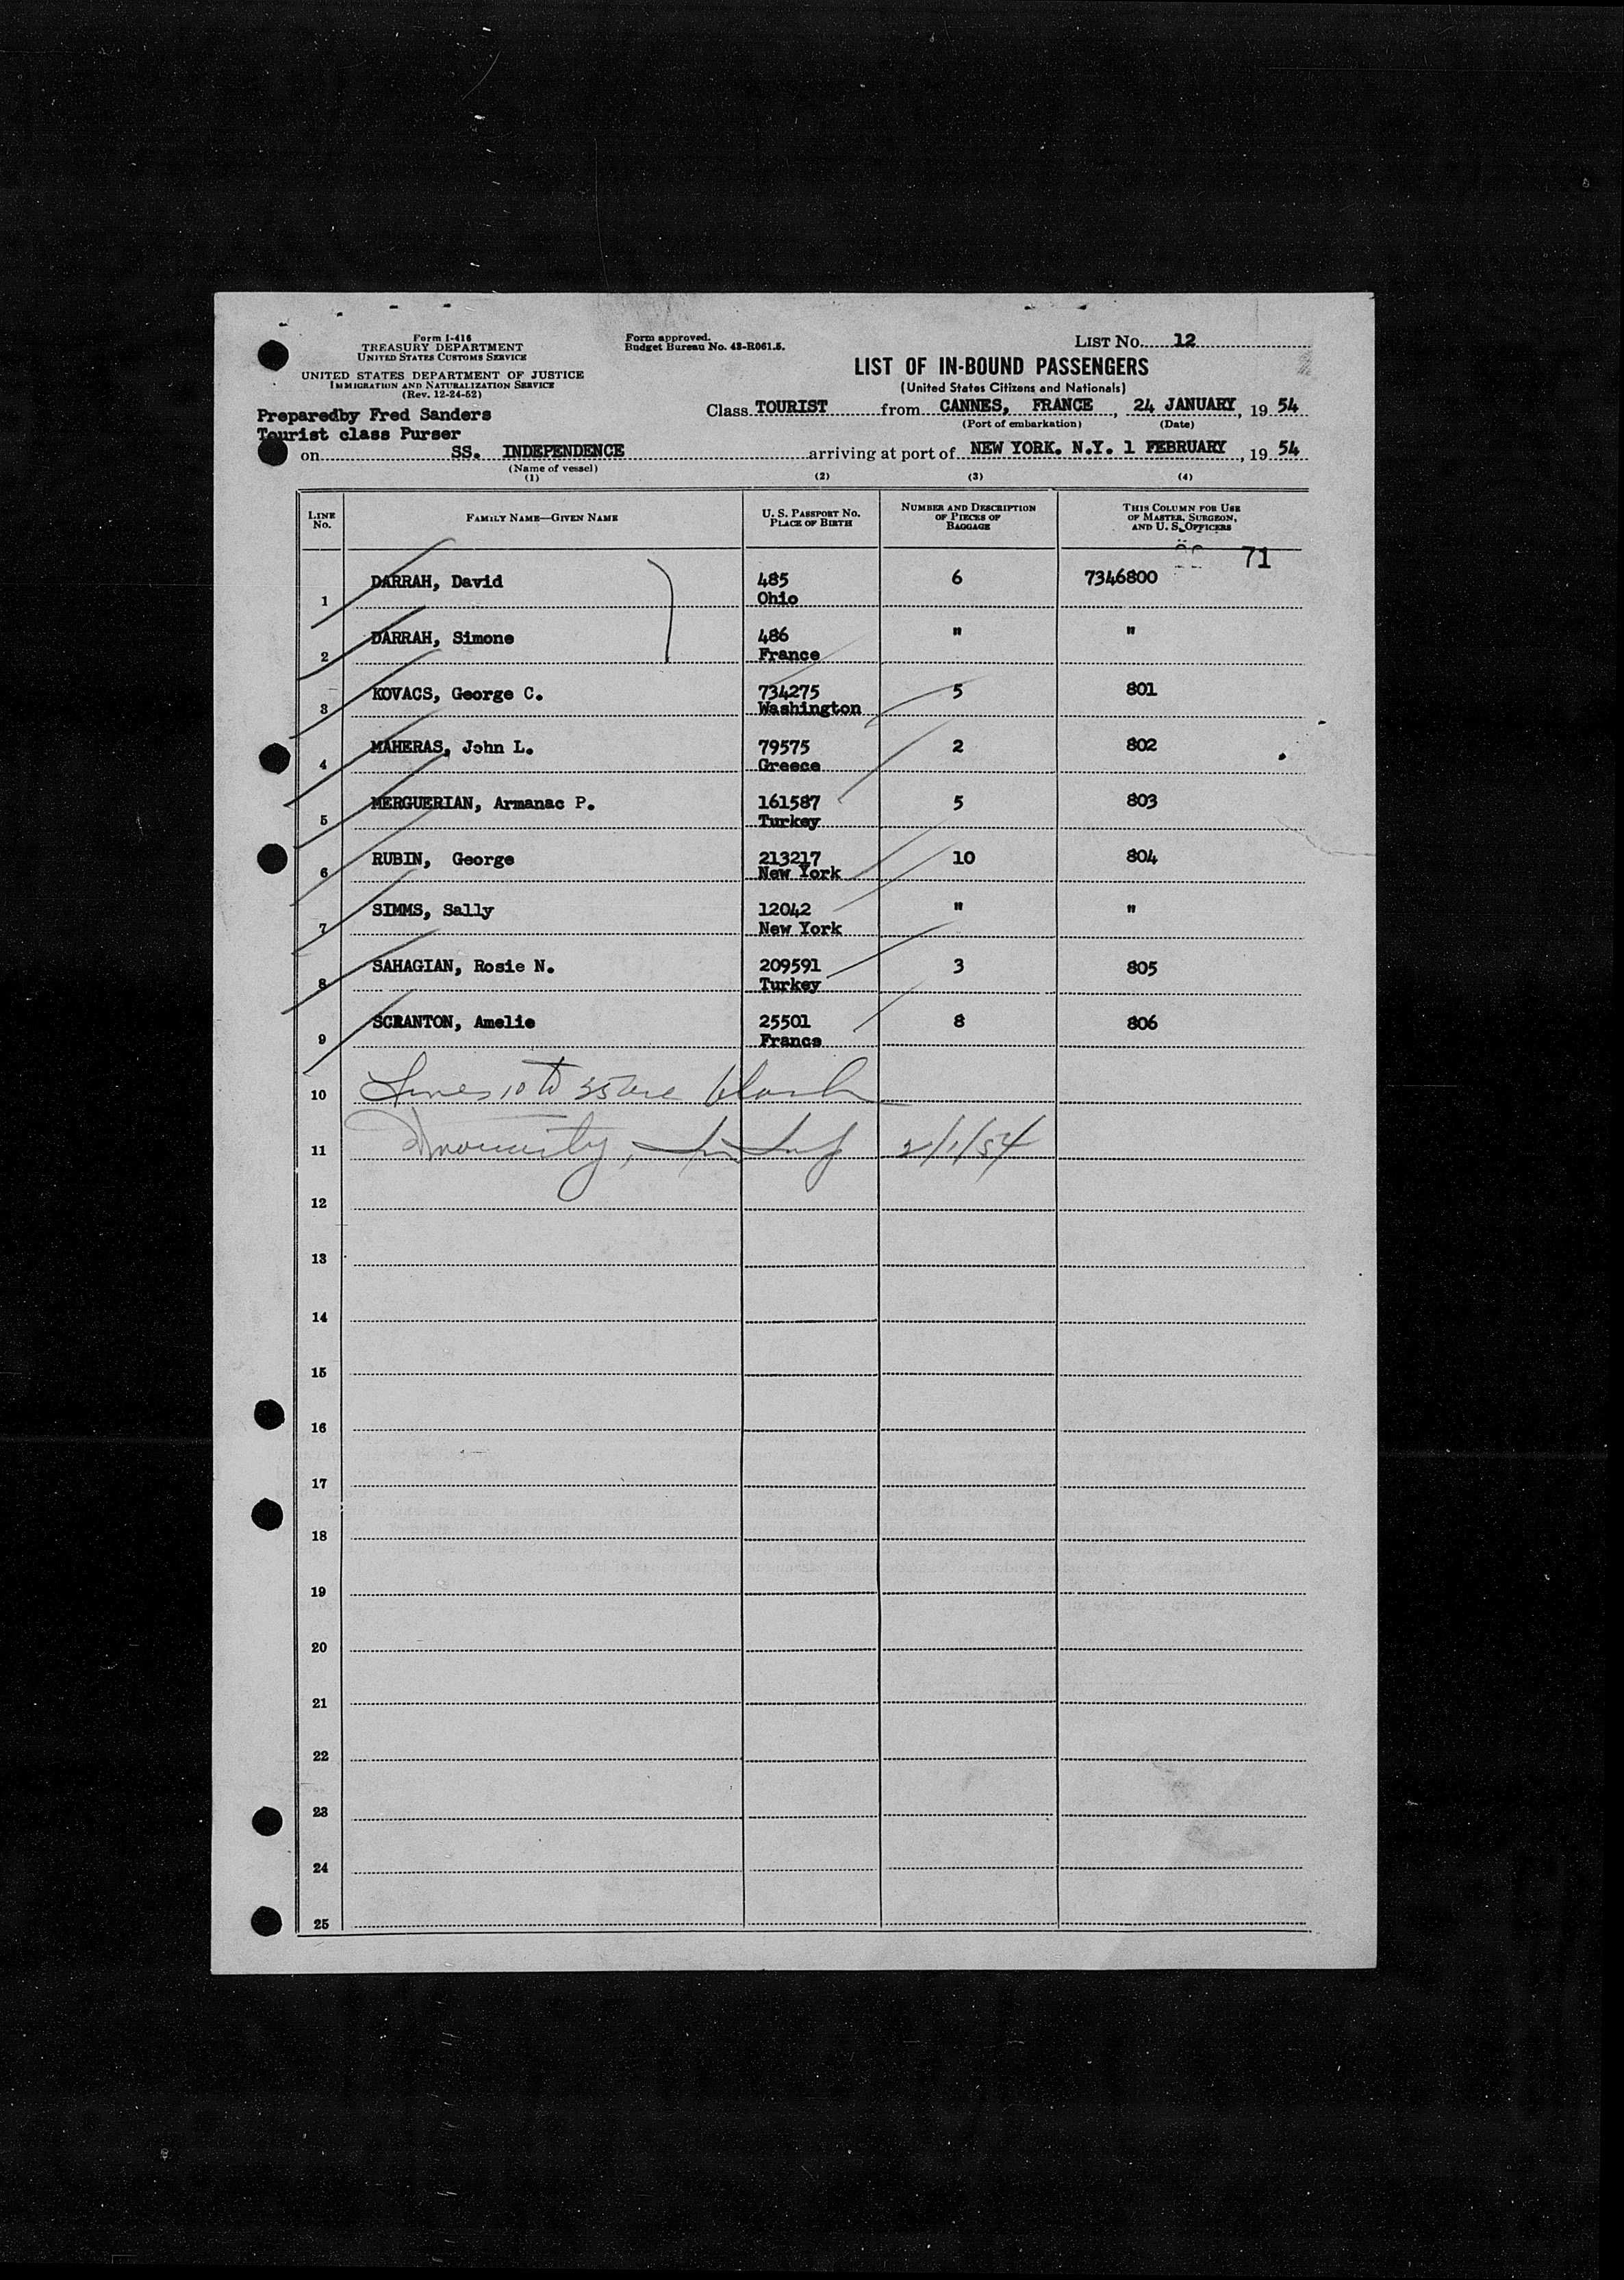 Form I-416
TREASURY DEPARTMENT
UNITED STATES CUSTOMS SERVICE
UNITED STATES DEPARTMENT OF JUSTICE
IMMIGRATION AND NATURALIZATION SERVICE
(Rev. 12-24-52)
Form approved.
Budget Bureau No. 43-R061.5.
LIST No. 12
LIST OF IN-BOUND PASSENGERS
(United States Citizens and Nationals)
Preparedby Fred Sanders
Tourist class Purser
Class TOURIST from CANNES, FRANCE, 24 JANUARY, 19 54
(Port of embarkation) (Date)
on SS. INDEPENDENCE arriving at port of NEW YORK. N.Y. 1 FEBRUARY, 19 54
(Name of vessel)
(1) (2) (3) (4)
LINE No. FAMILY NAME—GIVEN NAME U. S. PASSPORT No. PLACE OF BIRTH NUMBER AND DESCRIPTION OF PIECES OF BAGGAGE THIS COLUMN FOR USE OF MASTER, SURGEON, AND U. S. OFFICERS
71
1 DARRAH, David 485 6 7346800
Ohio
2 DARRAH, Simone 486 " "
France
3 KOVACS, George C. 734275 5 801
Washington
4 MAHERAS, John L. 79575 2 802
Greece
5 MERGUERIAN, Armanac P. 161587 5 803
Turkey
6 RUBIN, George 213217 10 804
New York
7 SIMMS, Sally 12042 " "
New York
8 SAHAGIAN, Rosie N. 209591 3 805
Turkey
9 SCRANTON, Amelie 25501 8 806
France
10 Lines 10 to 25 are blank
11 2/1/54
12
13
14
15
16
17
18
19
20
21
22
23
24
25